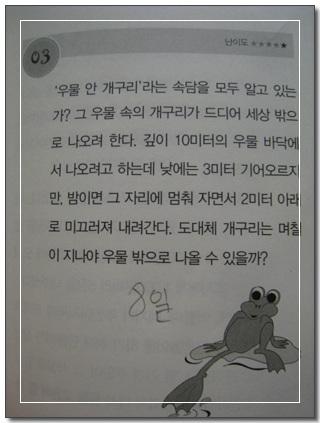 난이도 ★★★★★
03
'우물 안 개구리'라는 속담을 모두 알고 있는
가? 그 우물 속의 개구리가 드디어 세상 밖으
로 나오려 한다. 깊이 10미터의 우물 바닥에
서 나오려고 하는데 낮에는 3미터 기어오르지
만, 밤이면 그 자리에 멈춰 자면서 2미터 아래
로 미끄러져 내려간다. 도대체 개구리는 며칠
이 지나야 우물 밖으로 나올 수 있을까?
8일